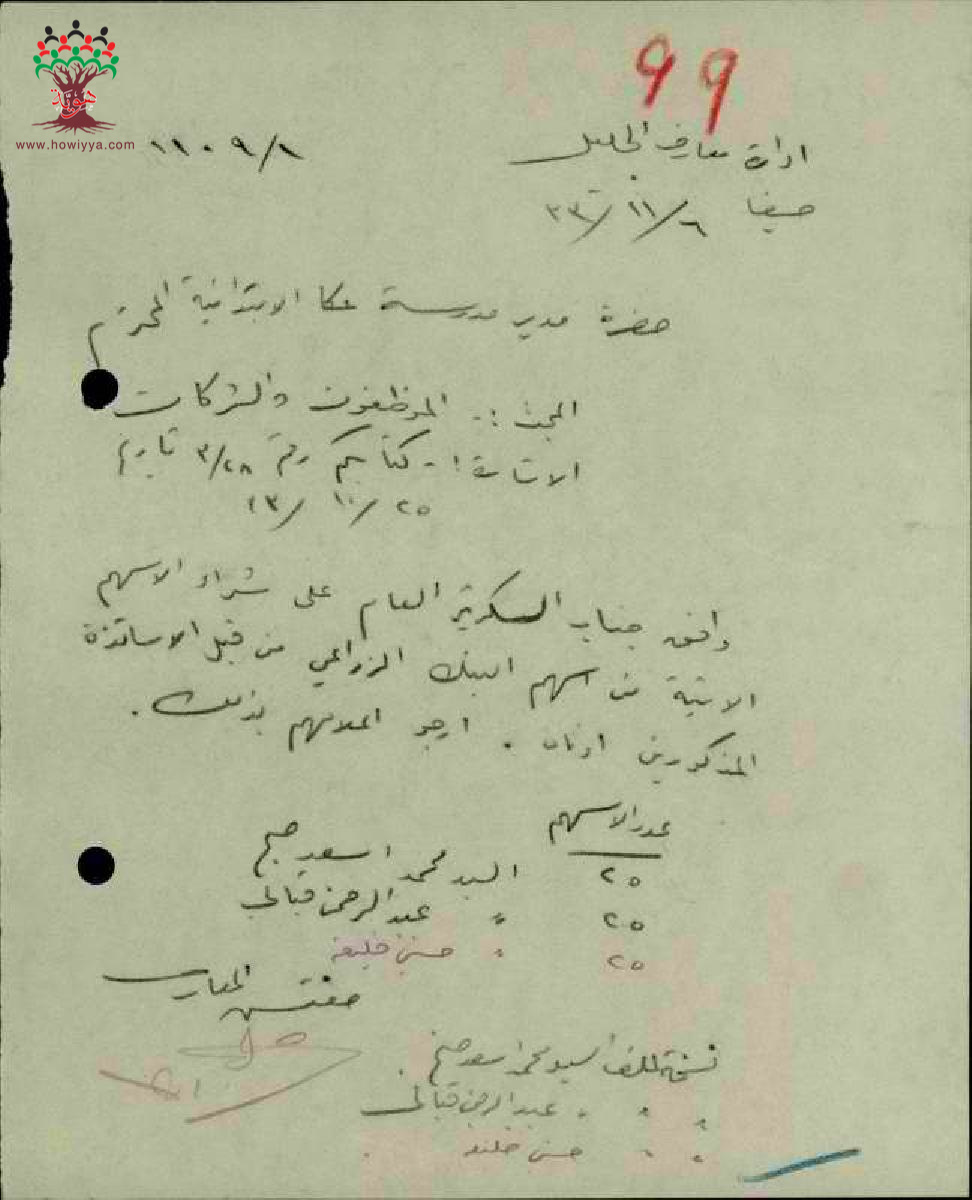 هوية
www.howiyya.com
99
ادارة معارف الجليل
١١٠٩/٨
حيفا ٦/١١/٣٣
حضرة مدير مدرسة عكا الابتدائية المحترم
البحث :- الموظفون والشركات
الاشارة :- كتابكم رقم ٣/٢٨ تاريخ
٢٥/١٠/٣٣
وافق جناب السكرتير العام على شراء الاسهم
الاتية من اسهم البنك الزراعي من قبل الاساتذة
المذكورين ادناه . ارجو اعلامهم بذلك .
عدد الاسهم
٢٥ السيد محمد اسعد صبح
٢٥ " عبد الرحمن قبالي
٢٥ " حسني خليفه
مفتش المعارف
نسخة لملف السيد محمد اسعد صبح .
" " " عبد الرحمن قبالي
" " حسني خليفه .